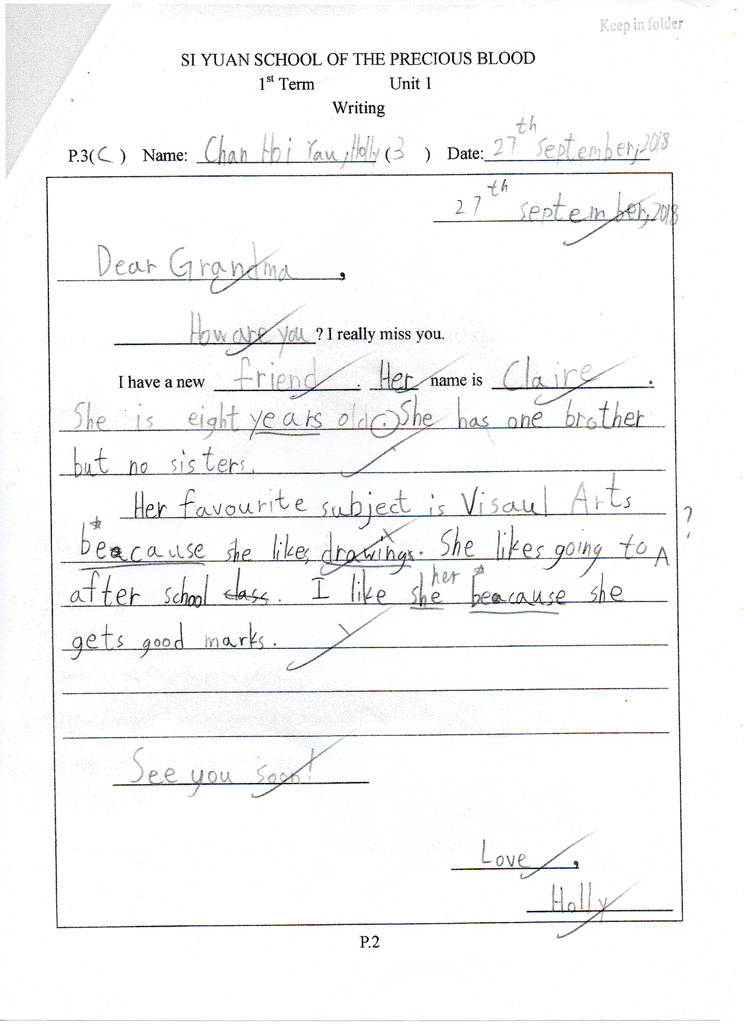 Keep in folder
SI YUAN SCHOOL OF THE PRECIOUS BLOOD
1st Term Unit 1
Writing
P.3(C) Name: Chan Hoi Yau, Holly (3) Date: 27th September, 2018
27th September, 2018
Dear Grandma,
How are you? I really miss you.
I have a new friend. Her name is Claire.
She is eight years old. She has one brother
but no sisters.
Her favourite subject is Visaul Arts ?
* beacause she likes drawings. She likes going to A
her *
after school class. I like she beacause she
gets good marks.
See you soon!
Love,
Holly
P.2